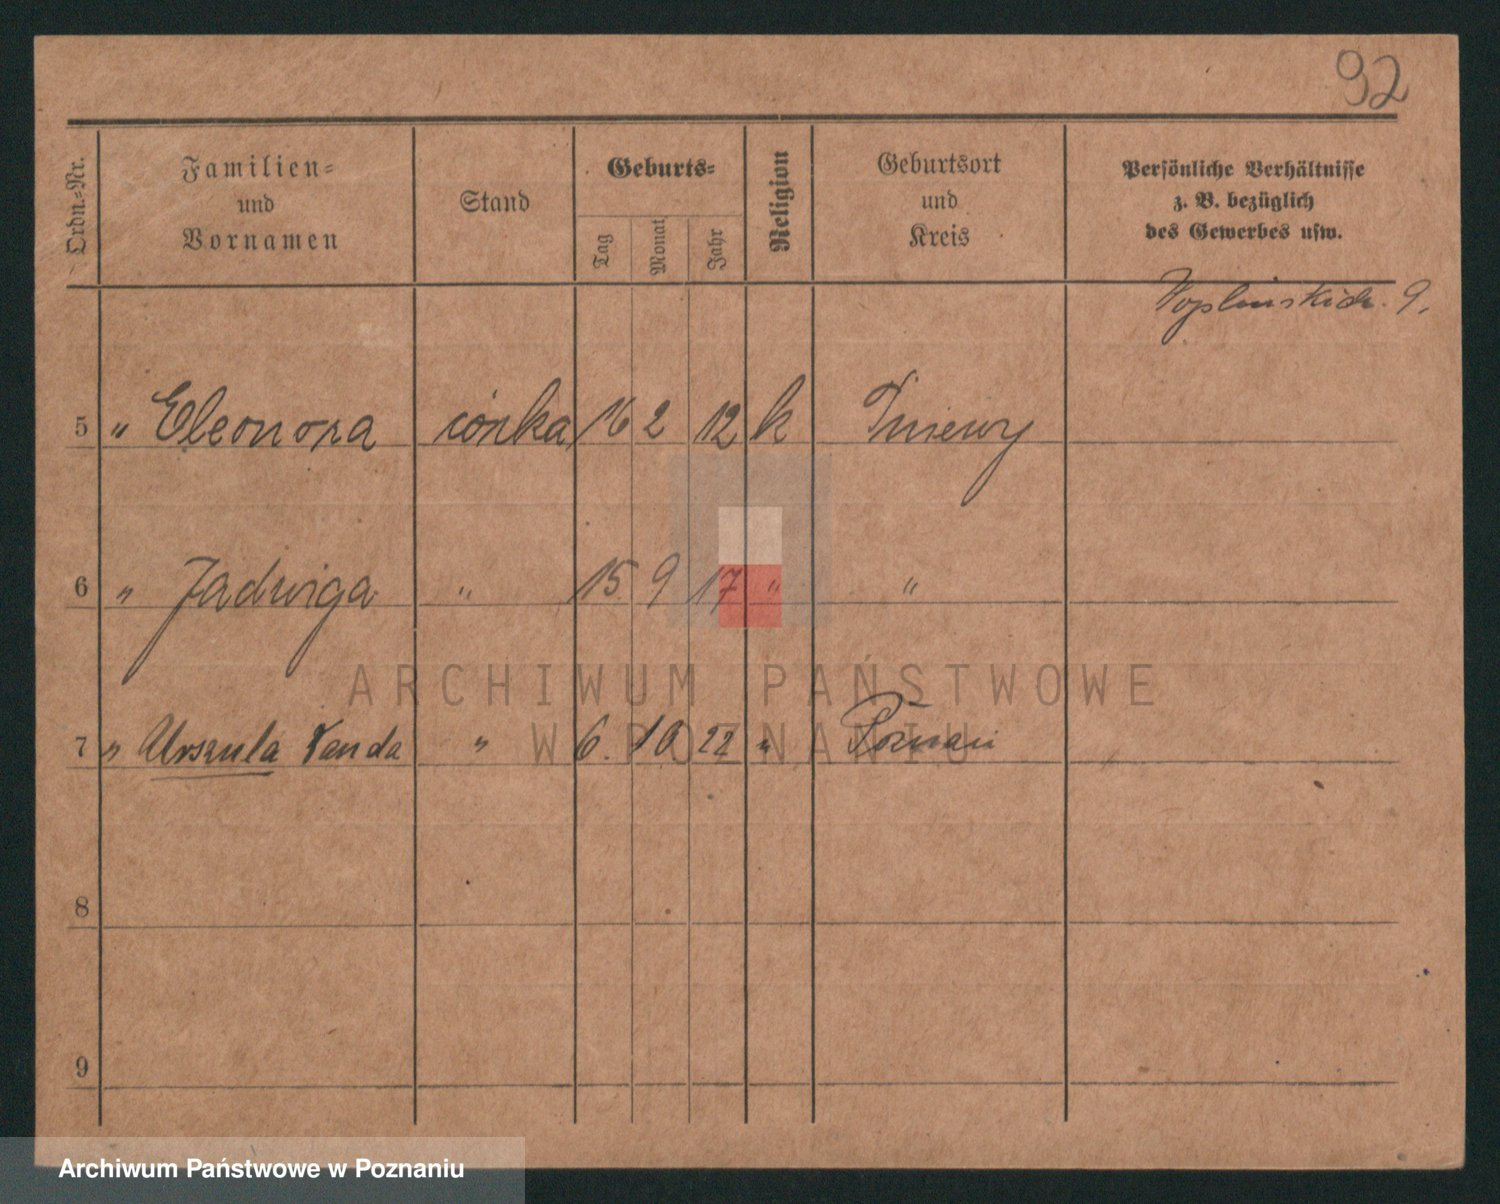 92
Ordn.=Nr.
Familien=
und
Vornamen
Stand
Geburts=
Tag
Monat
Jahr
Religion
Geburtsort
und
Kreis
Persönliche Verhältnisse
z. B. bezüglich
des Gewerbes usw.
9.
5 " Eleonora córka 16 2 12 k Pniewy
6 " Jadwiga " 15 9 17 " "
7 " Urszula Vanda " 6. 10 22 " Poznań
8
9
ARCHIWUM PAŃSTWOWE
W POZNANIU
Archiwum Państwowe w Poznaniu